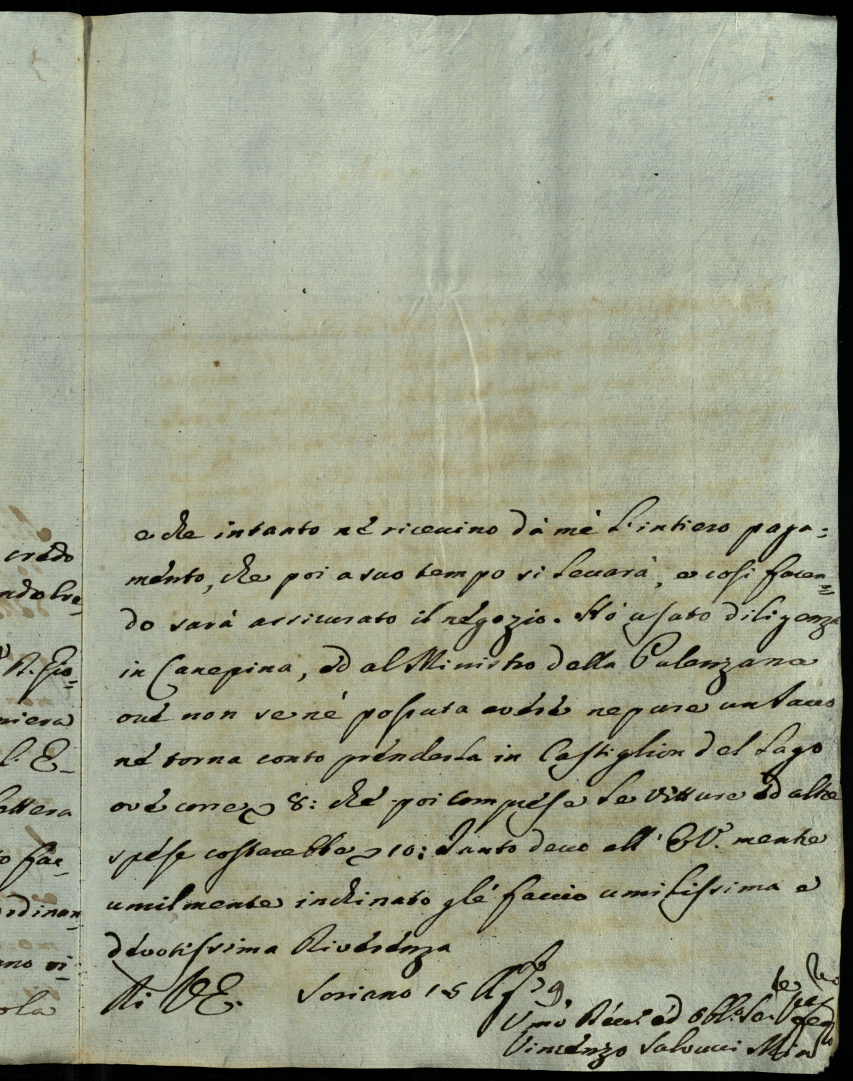 credo
A. Gio-
niera
l. E-
lettera
to fac-
ordinan
ano vi-
ola
e che intanto né ricevino dà mé l'intiero paga=
mento, che poi a suo tempo si levarà, e cosi facen=
do sarà assicurato il négozio. Hò usato diligenza
in Canepina, éd al Ministro della Pulenzana
ové non se né possuta avéré nepure un Sacco
né torna conto prénderla in Castiglion del Lago
ové corre 8: ché poi comprése le Vitture éd altre
spése costarebbe 10: Tanto devo all' E.V. mentre
umilmente inchinato glé faccio umilissima e
dévotissima Rivérénza
Di V.E. Soriano 15
Umo éd
Vincénzo Salvucci Min